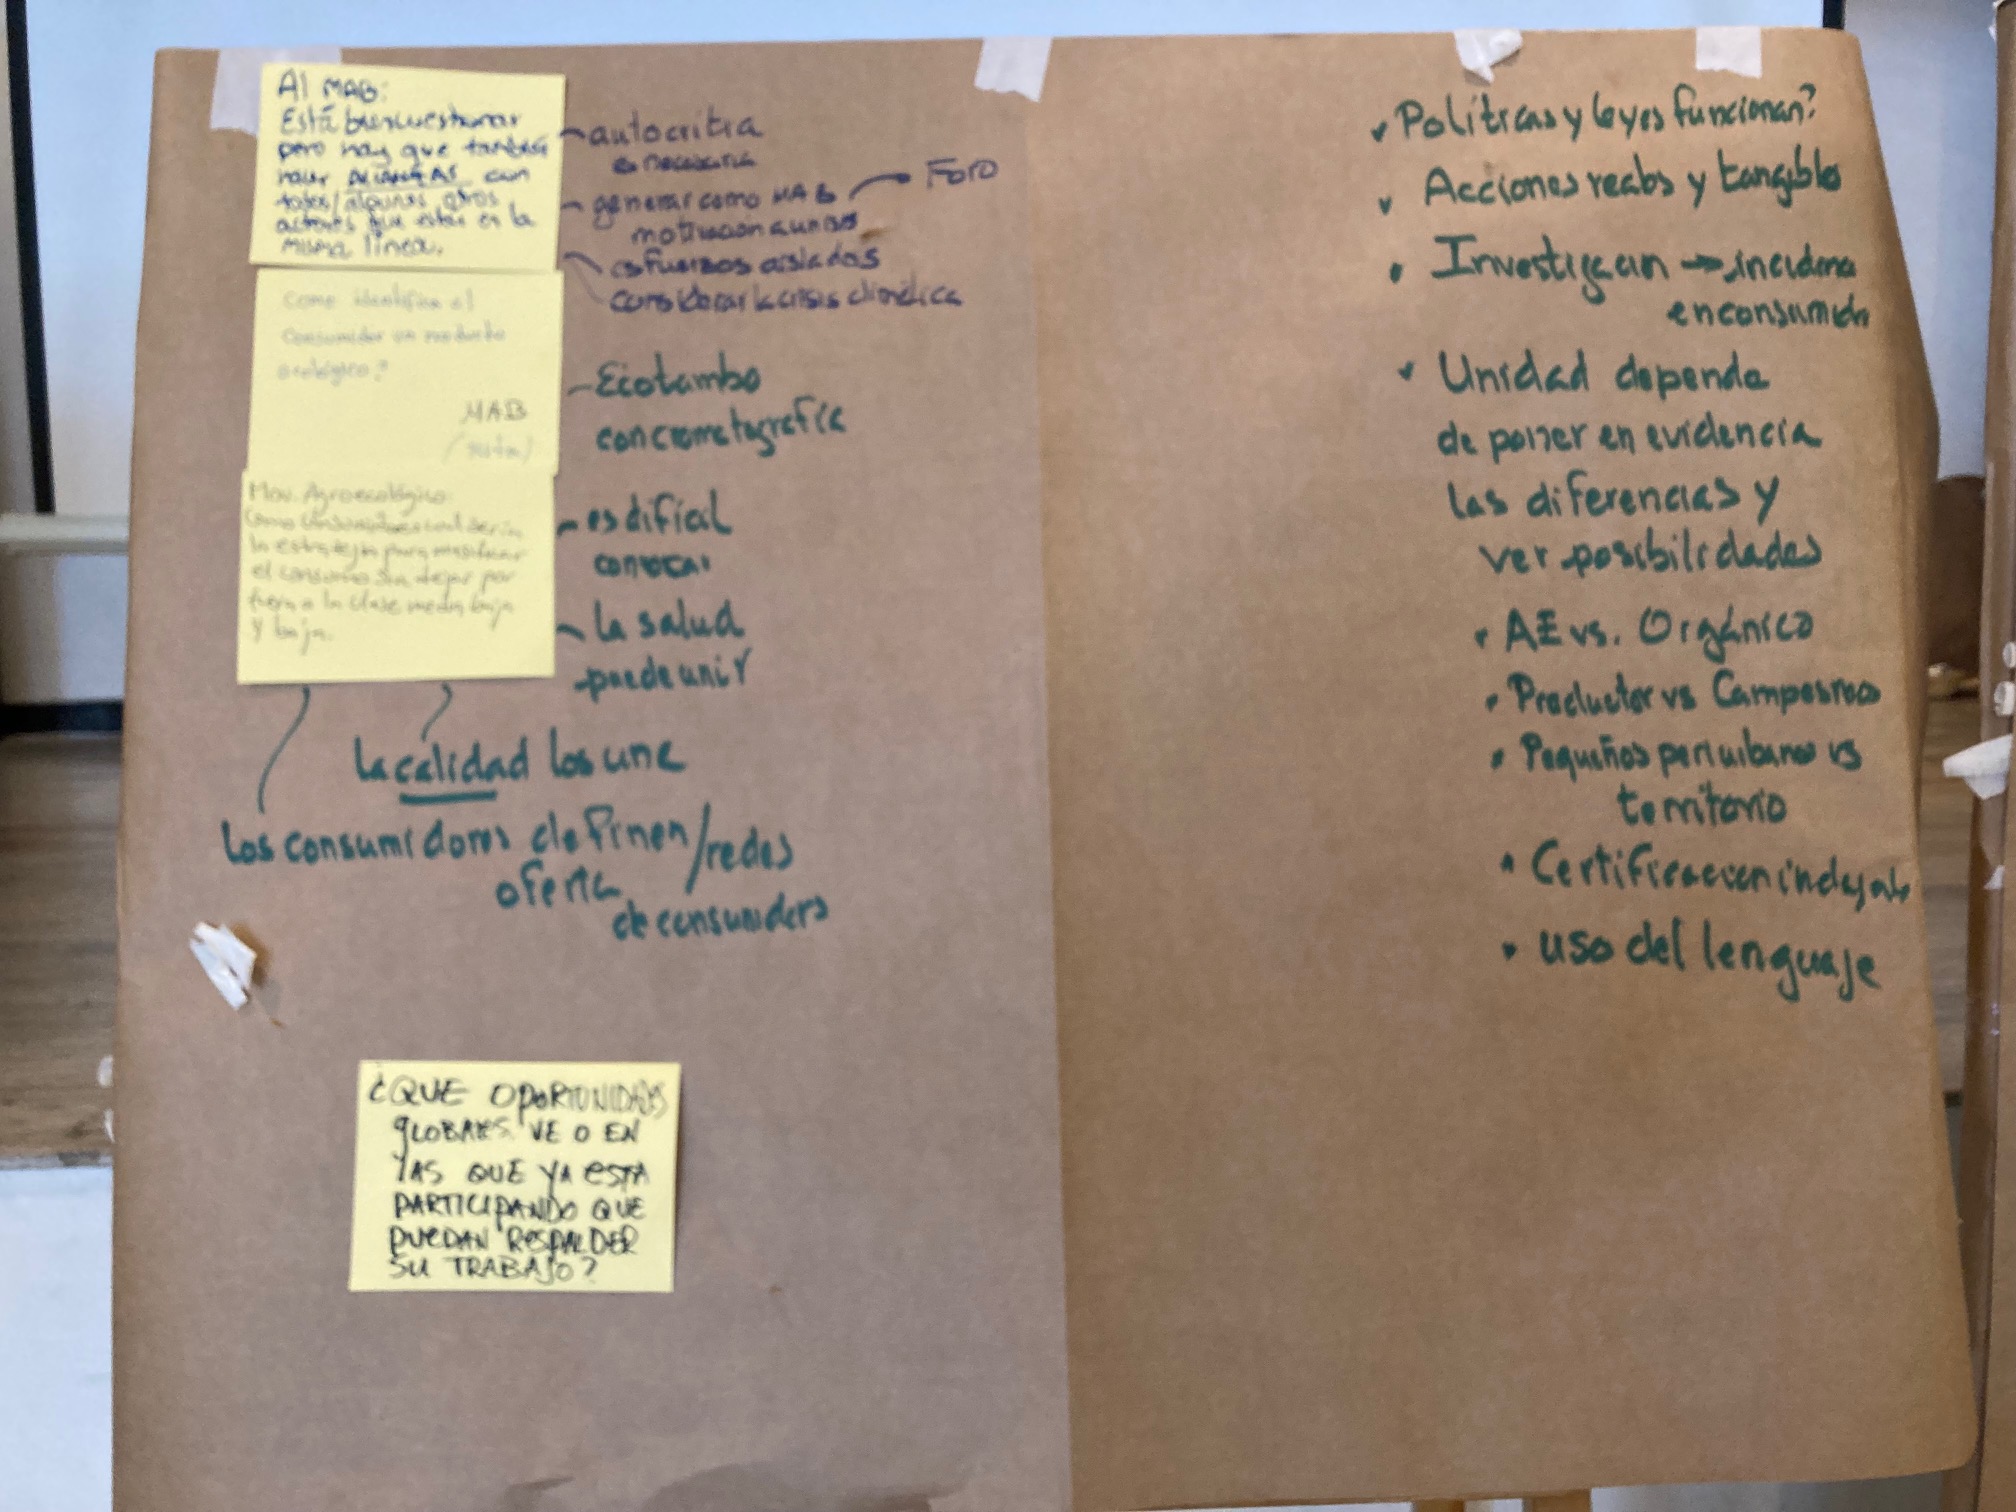 Al MAB:
Está bien cuestionar
pero hay que también
hacer ALIANZAS con
todos/algunos otros
actores que están en la
misma línea.
autocritia
es necesaria
generar como MAB
Foro
motivación a unirse
esfuerzos aislados
considerar la crisis climática
Como identifica el
Consumidor un producto
ecológico?
MAB
(
Mov. Agroecológico
Como consumidores cual sería
la estrategia para masificar
el consumo sin dejar por
fuera a la clase media baja
y baja.
Ecotambo
con cromatografía
es difícil
convocar
la salud
puede unir
La calidad los une
Los consumidores definen
oferta
/redes
de consumidores
¿QUE OPORTUNIDADES
GLOBALES VE O EN
LAS QUE YA ESTA
PARTICIPANDO QUE
PUEDAN RESPALDER
SU TRABAJO?
Políticas y leyes funcionan?
Acciones reales y tangibles
Investigacion → incidencia
en consumidor
Unidad depende
de poner en evidencia
las diferencias y
ver posibilidades
AE vs. Orgánico
Productor vs Campesino
Pequeños periurbano vs
territorio
Certificacion
uso del lenguaje